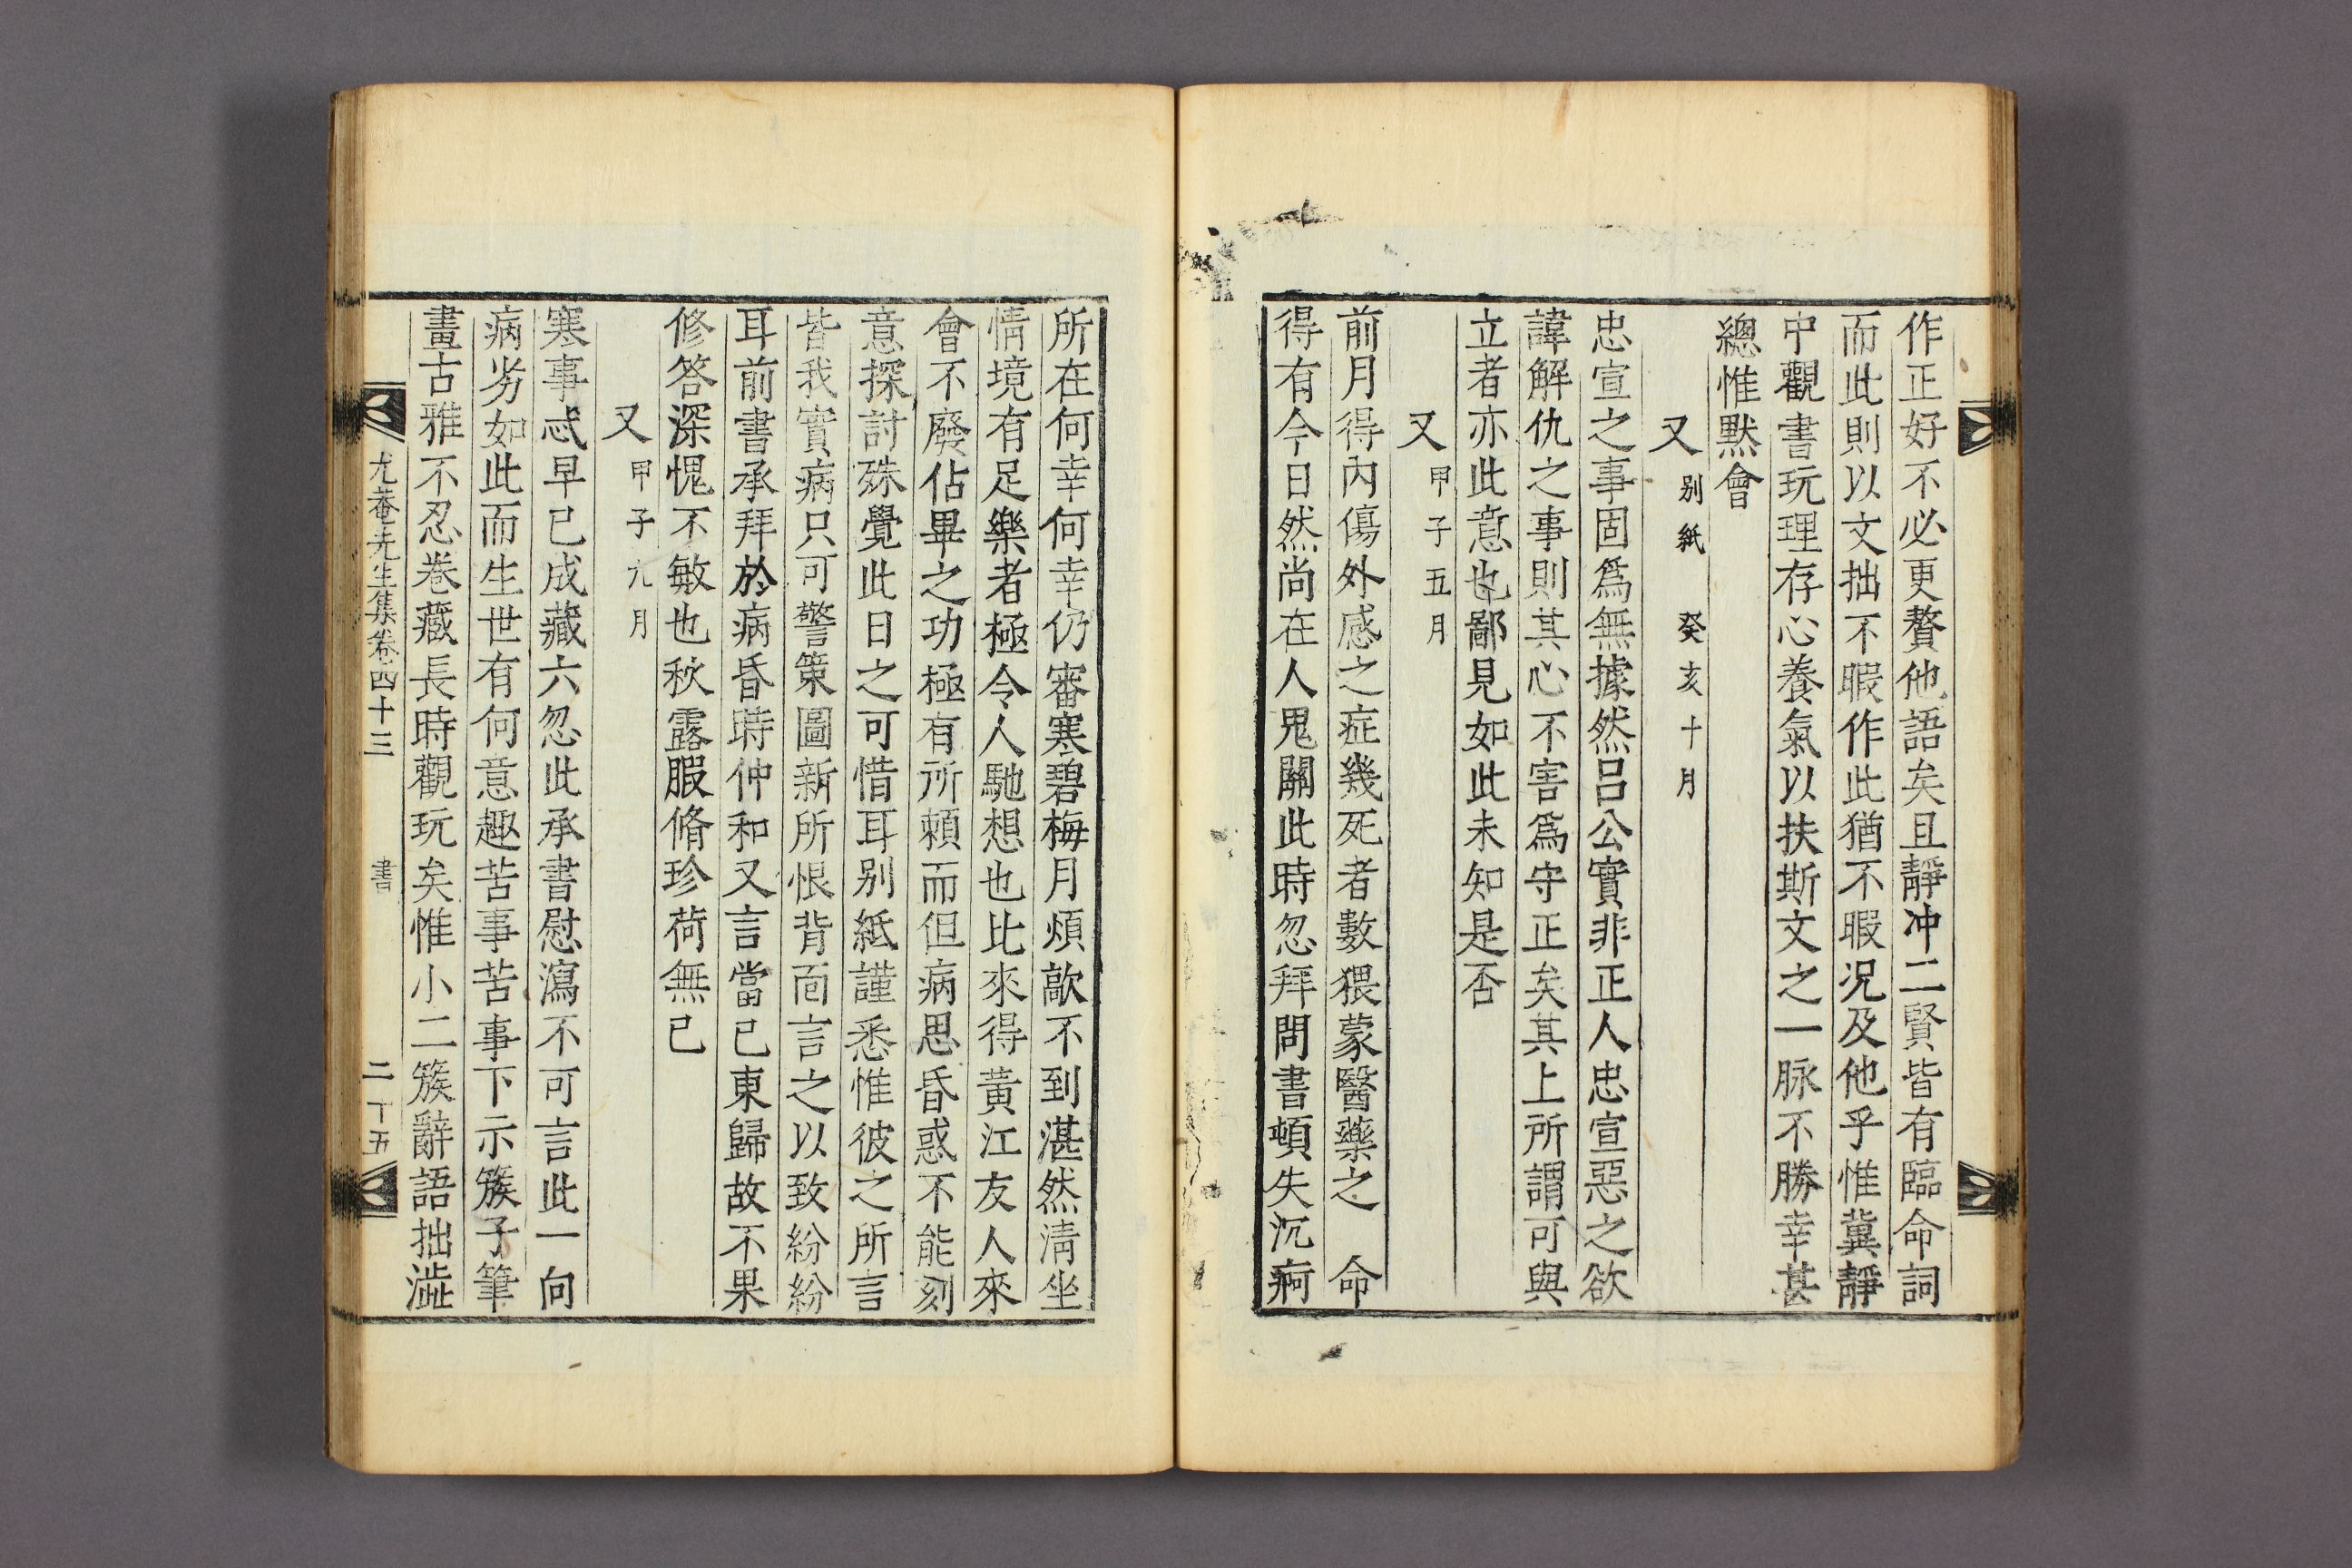 作正好不必更贅他語矣且靜冲二賢皆有臨命詞
而此則以文拙不暇作此猶不暇况及他乎惟冀靜
中觀書玩理存心養氣以扶斯文之一脉不勝幸甚
總惟默會
又别紙 癸亥十月
忠宣之事固爲無據然呂公實非正人忠宣惡之欲
諱解仇之事則其心不害爲守正矣其上所謂可與
立者亦此意也鄙見如此未知是否
又甲子五月
前月得內傷外感之症幾死者數猥蒙醫藥之 命
得有今日然尚在人鬼關此時忽拜問書頓失沉痾
所在何幸何幸仍審寒碧梅月煩歊不到湛然淸坐
情境有足樂者極令人馳想也比來得黃江友人來
會不廢佔畢之功極有所賴而但病思昏惑不能刻
意探討殊覺此日之可惜耳别紙謹悉惟彼之所言
皆我實病只可警策圖新所恨背而言之以致紛紛
耳前書承拜於病昏時仲和又言當已東歸故不果
修答深愧不敏也秋露服脩珍荷無已
又甲子九月
寒事忒早已成藏六忽此承書慰瀉不可言此一向
病劣如此而生世有何意趣苦事苦事下示簇子筆
畫古雅不忍卷藏長時觀玩矣惟小二簇辭語拙澁
尤菴先生集卷四十三 書 二十五